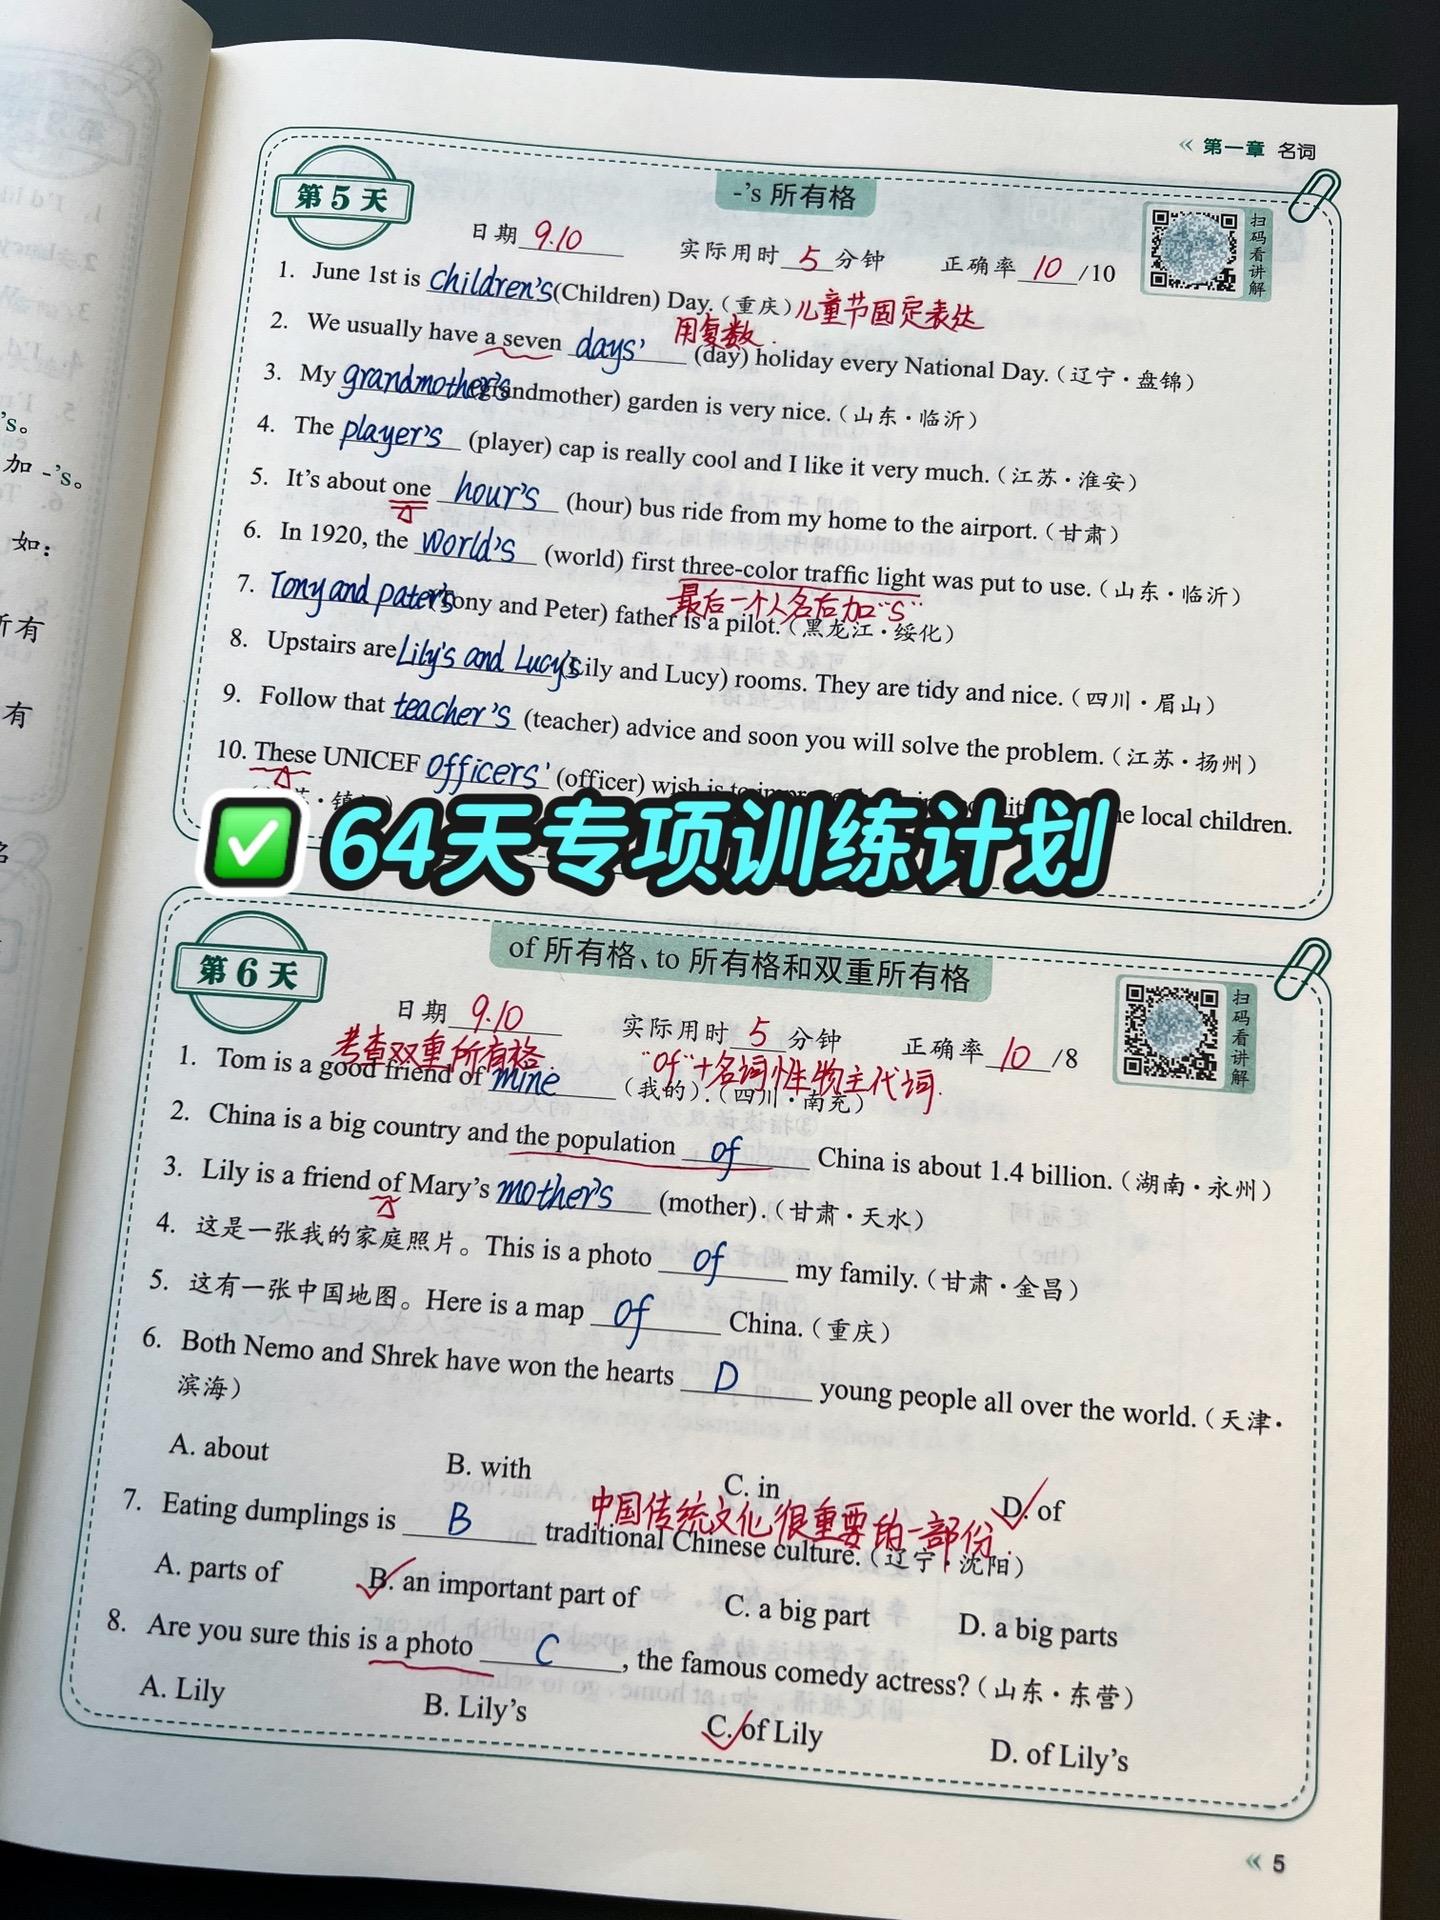 « 第一章 名词
第5天
-'s 所有格
扫码看讲解
日期 9.10 实际用时 5 分钟 正确率 10 /10
1. June 1st is children's (Children) Day.(重庆)儿童节固定表达
用复数.
2. We usually have a seven days' (day) holiday every National Day.(辽宁·盘锦)
3. My grandmother's (grandmother) garden is very nice.(山东·临沂)
4. The player's (player) cap is really cool and I like it very much.(江苏·淮安)
5. It's about one hour's (hour) bus ride from my home to the airport.(甘肃)
6. In 1920, the world's (world) first three-color traffic light was put to use.(山东·临沂)
最后一个人名后加"s"
7. Tony and pater's (Tony and Peter) father is a pilot.(黑龙江·绥化)
8. Upstairs are Lily's and Lucy's (Lily and Lucy) rooms. They are tidy and nice.(四川·眉山)
9. Follow that teacher's (teacher) advice and soon you will solve the problem.(江苏·扬州)
10. These UNICEF officers' (officer) wish is to the local children.
✅ 64天专项训练计划
第6天
of 所有格、to 所有格和双重所有格
扫码看讲解
日期 9.10 实际用时 5 分钟 正确率 10 /8
考查双重所有格. "of"+名词性物主代词.
1. Tom is a good friend of mine (我的).(四川·南充)
2. China is a big country and the population of China is about 1.4 billion.(湖南·永州)
3. Lily is a friend of Mary's mother's (mother).(甘肃·天水)
4. 这是一张我的家庭照片。This is a photo of my family.(甘肃·金昌)
5. 这有一张中国地图。Here is a map of China.(重庆)
6. Both Nemo and Shrek have won the hearts D young people all over the world.(天津·
滨海)
A. about B. with C. in D. of
中国传统文化很重要的一部份.
7. Eating dumplings is B traditional Chinese culture.(辽宁·沈阳)
A. parts of B. an important part of C. a big part D. a big parts
8. Are you sure this is a photo C , the famous comedy actress?(山东·东营)
A. Lily B. Lily's C. of Lily D. of Lily's
« 5
's。
加 -'s。
如:
所有
有